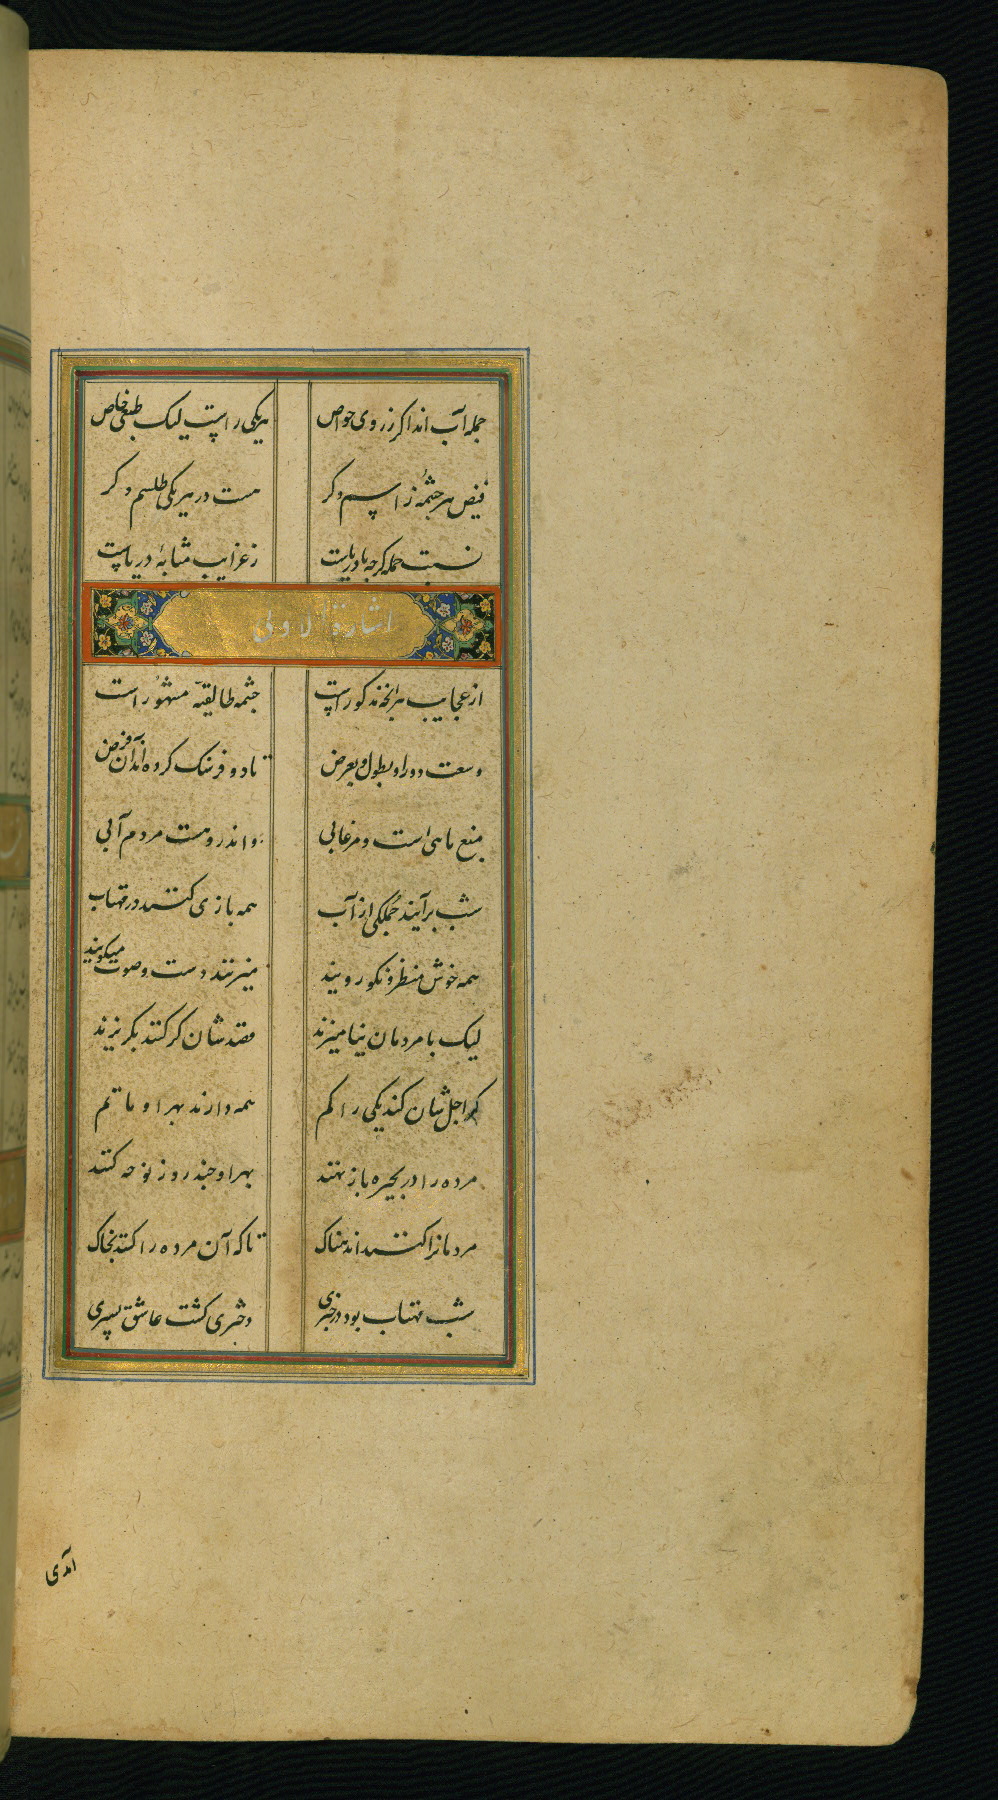 جمله آب اند اکر ز روی خواص هر یکی راست لیک طبعی خاص
فیض هر چشمهٔ ز اسم دکر هست در هر یکی طلسم دکر
نسبت جمله کرچه با دریاست ز غرایب مثابهٔ دریاست
اشارة الاولی
از عجایب هر آنچه مذکور است چشمه طالقیه مشهور است
وسعت دور او بطول و بعرض تا دو فرسنک کرده اند آن فرض
منبع ماهی است و مرغابی واندرو هست مردم آبی
شب برآیند جملکی از آب همه بازی کنند در مهتاب
همه خوش منظر و نکو رویند میزنند دست و صوت میکویند
لیک با مردمان نیامیزند قصدشان کر کنند بکریزند
کر اجل شان کند یکی را کم همه دارند بهر او ماتم
بهر او چند روز نوحه کنند مرده را در بحیره باز نهند
مردمانرا کنند اندهناک تا که آن مرده را کنند بخاک
شب مهتاب بود دختری کشت عاشق پسری
آمدی